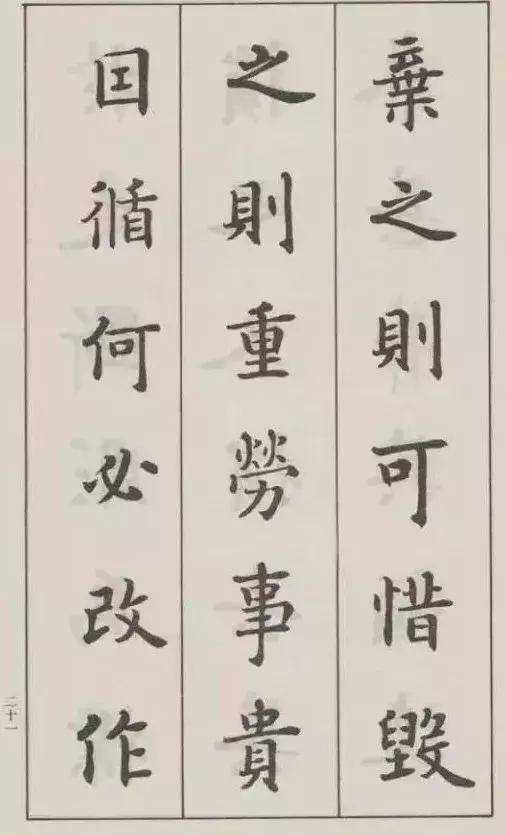 棄之則可惜毀
之則重勞事貴
因循何必改作
二十一